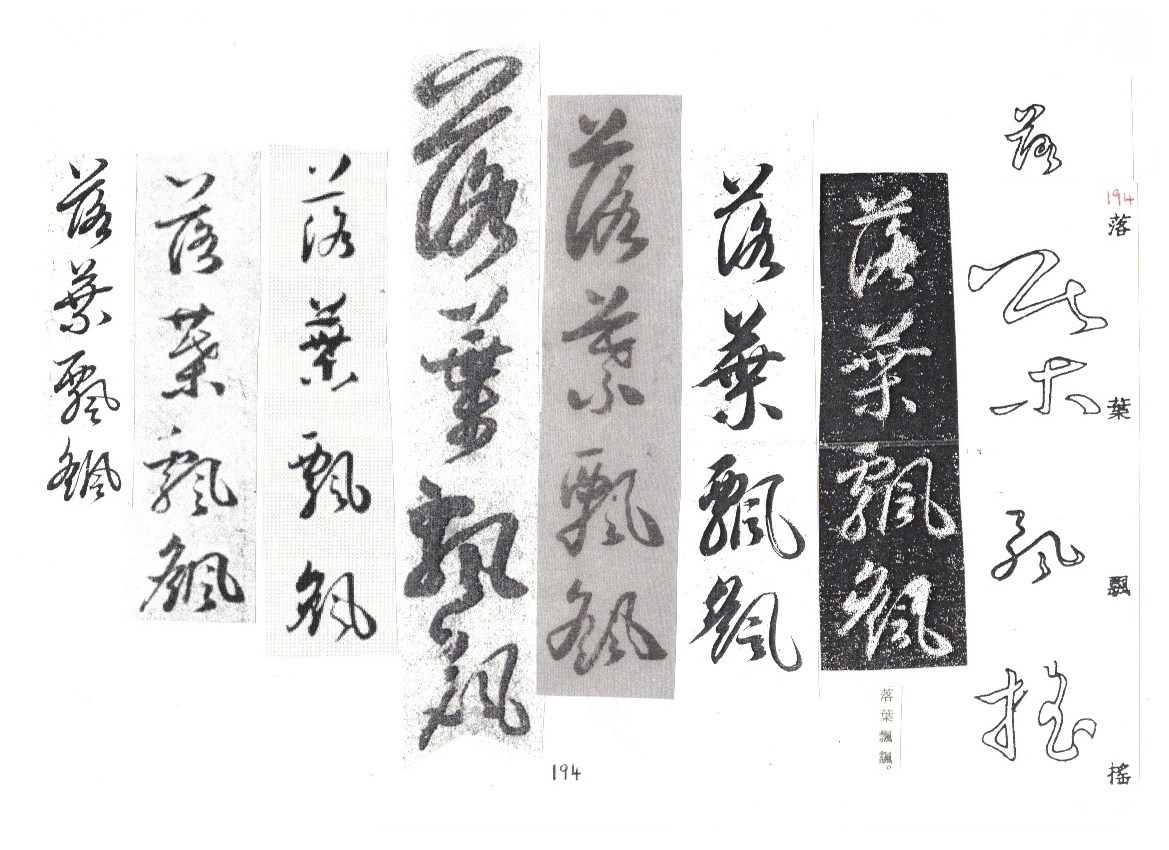 落葉飄搖
194
落葉飄搖
落葉飄颻
落葉飄颻。
落葉飄颻
落葉飄颻
落葉飄颻
落葉飄颻
落葉飄颻
落葉飄颻
194